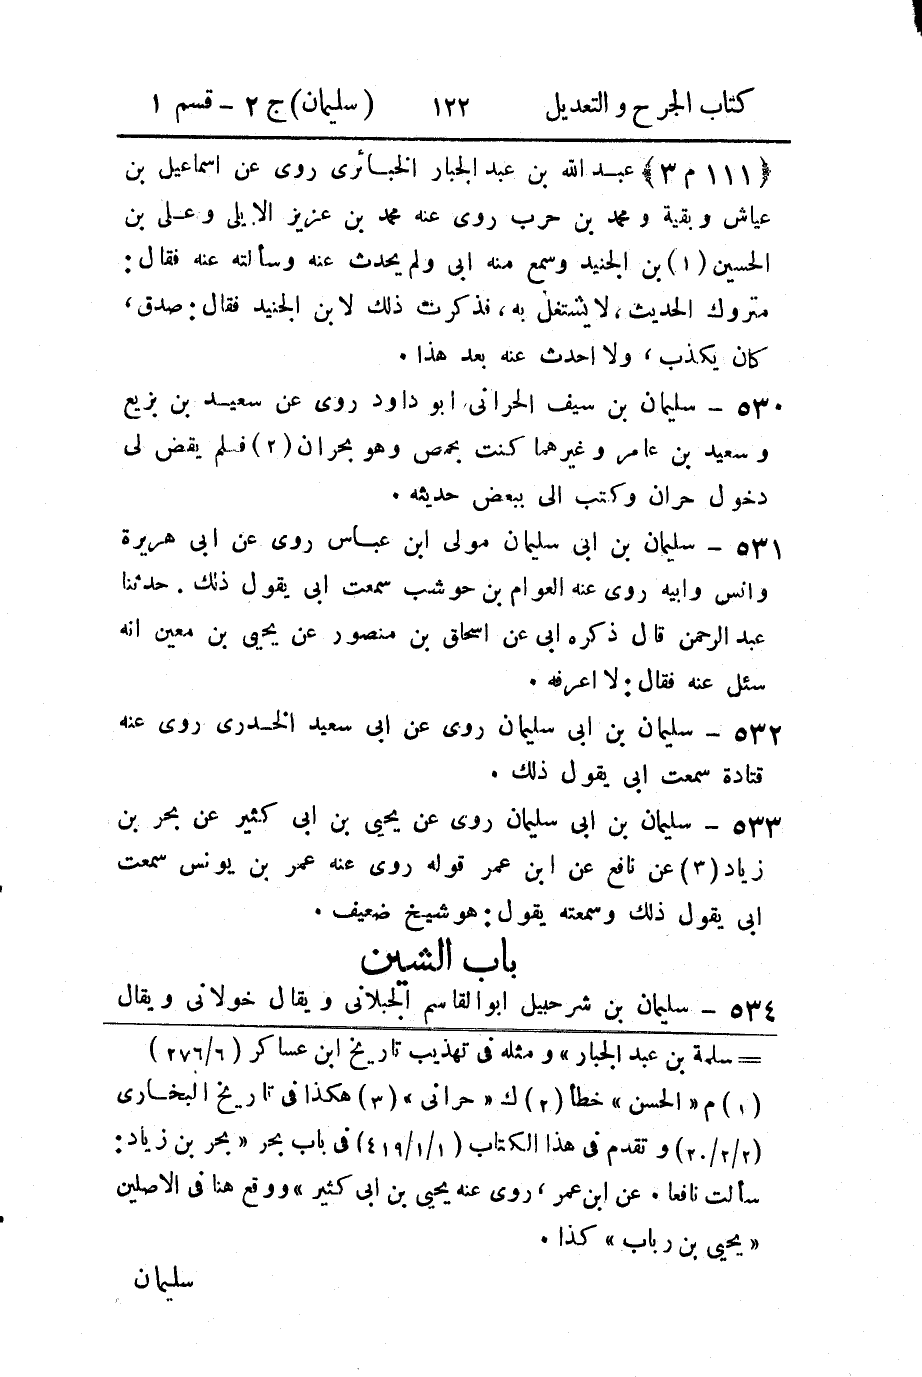 كتاب الجرح والتعديل ١٢٢ (سليمان) ج ٢ - قسم ١
﴿١١١ م ٣﴾ عبد الله بن عبد الجبار الخبائرى روى عن اسماعيل بن
عياش وبقية ومحمد بن حرب روى عنه محمد بن عزيز الايلى وعلى بن
الحسين (١) بن الجنيد وسمع منه ابى ولم يحدث عنه وسألته عنه فقال:
متروك الحديث، لا يشتغل به، فذكرت ذلك لابن الجنيد فقال: صدق،
كان يكذب، ولا احدث عنه بعد هذا.
٥٣٠ - سليمان بن سيف الحرانى ابو داود روى عن سعيد بن بزيع
وسعيد بن عامر وغيرهما كنت بحمص وهو بحران (٢) فلم يقض لى
دخول حران وكتب الى ببعض حديثه.
٥٣١ - سليمان بن ابى سليمان مولى ابن عباس روى عن ابى هريرة
وانس وابيه روى عنه العوام بن حوشب سمعت ابى يقول ذلك. حدثنا
عبد الرحمن قال ذكره ابى عن اسحاق بن منصور عن يحيى بن معين انه
سئل عنه فقال: لا اعرفه.
٥٣٢ - سليمان بن ابى سليمان روى عن ابى سعيد الخدرى روى عنه
قتادة سمعت ابى يقول ذلك.
٥٣٣ - سليمان بن ابى سليمان روى عن يحيى بن ابى كثير عن بحر بن
زياد (٣) عن نافع عن ابن عمر قوله روى عنه عمر بن يونس سمعت
ابى يقول ذلك وسمعته يقول: هو شيخ ضعيف.
باب الشين
٥٣٤ - سليمان بن شرحبيل ابو القاسم الجبلانى ويقال خولانى ويقال
= سلمة بن عبد الجبار» ومثله فى تهذيب تاريخ ابن عساكر (٢٧٦/٦)
(١) م «الحسن» خطأ (٢) ك «حرانى» (٣) هكذا فى تاريخ البخارى
(٢٠/٢/٢) وتقدم فى هذا الكتاب (٤١٩/١/١) فى باب بحر «بحر بن زياد:
سألت نافعا. عن ابن عمر، روى عنه يحيى بن ابى كثير» ووقع هنا فى الاصلين
«يحيى بن رباب» كذا.
سليمان